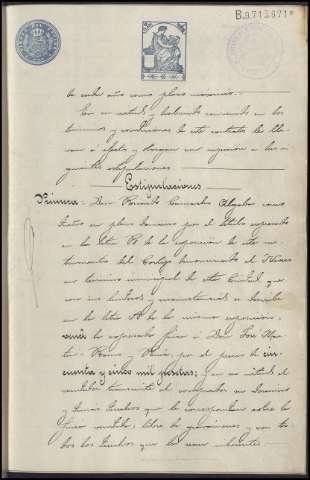 B.9713971*
de ocho años como plazo máximo.
En su virtud, y habiendo convenido en los
términos y condiciones de este contrato, lo lle-
van a efecto y otorgan con sujeción a las si-
guientes estipulaciones
Estipulaciones
Primera = Don Ricardo Camacho
dueño en pleno dominio por el título expresado
en la letra B. de la exposición de este ins-
trumento del Cortijo denominado el
en término municipal de esta Ciudad, que
con sus linderos y se describe
en la letra A de la misma exposición,
vende la expresada finca a Don José Mar-
Ramos y por el precio de cin-
cuenta y cinco mil pesetas; y en su virtud el
vendedor transmite al comprador el dominio
y demás derechos que le corresponden sobre la
finca vendida, libre de gravámenes y con to-
dos los derechos que le sean inherentes.